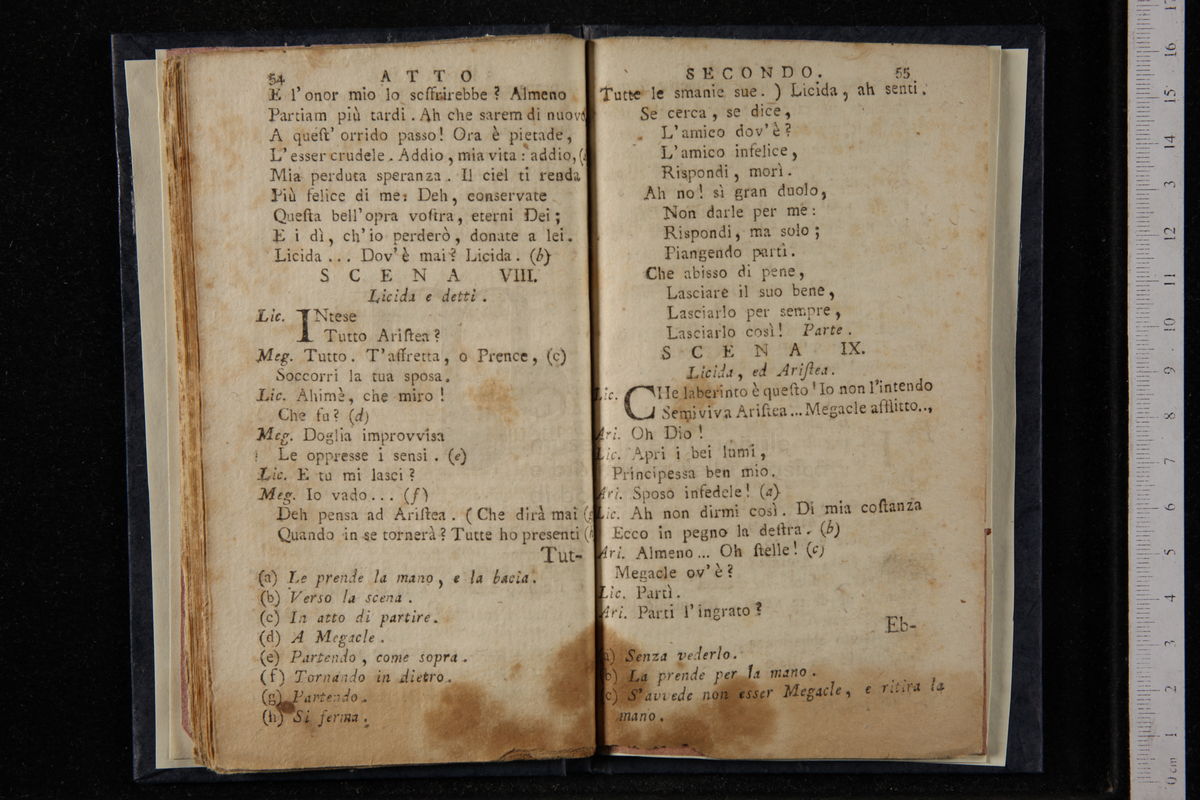 54 ATTO
E l'onor mio lo soffrirebbe? Almeno
Partiam più tardi. Ah che sarem di nuovo
A queſt' orrido passo! Ora è pietade,
L'esser crudele. Addio, mia vita: addio, (a
Mia perduta speranza. Il ciel ti renda
Più felice di me: Deh, conservate
Queſta bell'opra voſtra, eterni Dei;
E i dì, ch'io perderò, donate a lei.
Licida ... Dov'è mai? Licida. (b)
SCENA VIII.
Licida e detti.
Lic. INtese
Tutto Ariſtea?
Meg. Tutto. T'affretta, o Prence, (c)
Soccorri la tua sposa.
Lic. Ahimè, che miro!
Che fu? (d)
Meg. Doglia improvvisa
Le oppresse i sensi. (e)
Lic. E tu mi lasci?
Meg. Io vado... (f)
Deh pensa ad Ariſtea. (Che dirà mai (g
Quando in se tornerà? Tutte ho presenti (h
Tut-
(a) Le prende la mano, e la bacia.
(b) Verso la scena.
(c) In atto di partire.
(d) A Megacle.
(e) Partendo, come sopra.
(f) Tornando in dietro.
(g) Partendo.
(h) Si ferma.
SECONDO. 55
Tutte le smanie sue.) Licida, ah senti.
Se cerca, se dice,
L'amico dov'è?
L'amico infelice,
Rispondi, morì.
Ah no! sì gran duolo,
Non darle per me:
Rispondi, ma solo;
Piangendo partì.
Che abisso di pene,
Lasciare il suo bene,
Lasciarlo per sempre,
Lasciarlo così! Parte.
SCENA IX.
Licida, ed Ariſtea.
Lic. CHe laberinto è queſto! Io non l'intendo
Semiviva Ariſtea... Megacle afflitto..,
Ari. Oh Dio!
Lic. Apri i bei lumi,
Principessa ben mio.
Ari. Sposo infedele! (a)
Lic. Ah non dirmi così. Di mia coſtanza
Ecco in pegno la deſtra. (b)
Ari. Almeno... Oh ſtelle! (c)
Megacle ov'è?
Lic. Partì.
Ari. Parti l'ingrato?
Eb-
(a) Senza vederlo.
(b) La prende per la mano.
(c) S'avvede non esser Megacle, e ritira la
mano.
0 cm 1 2 3 4 5 6 7 8 9 10 11 12 13 14 15 16 17